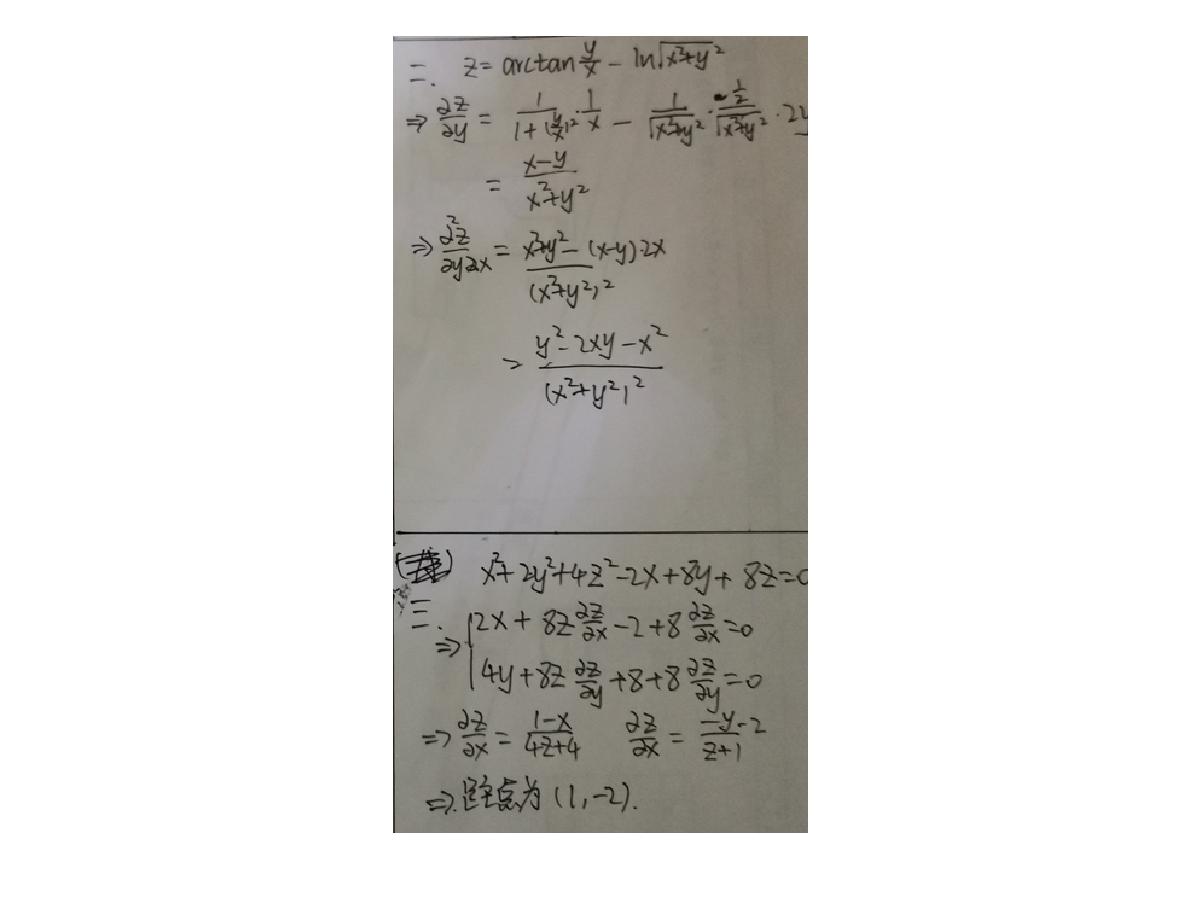 二. z = arctan y/x - ln√(x²+y²)
⇒ ∂z/∂y = 1/(1+(y/x)²) · 1/x - 1/√(x²+y²) · (1/2)/√(x²+y²) · 2y
= (x-y)/(x²+y²)
⇒ ∂²z/∂y∂x = (x²+y² - (x-y)·2x)/(x²+y²)²
= (y²-2xy-x²)/(x²+y²)²
三. x²+2y²+4z²-2x+8y+8z=0
⇒ { 2x + 8z ∂z/∂x - 2 + 8 ∂z/∂x = 0
4y + 8z ∂z/∂y + 8 + 8 ∂z/∂y = 0
⇒ ∂z/∂x = (1-x)/(4z+4) ∂z/∂x = (-y-2)/(z+1)
⇒ 驻点为 (1,-2).